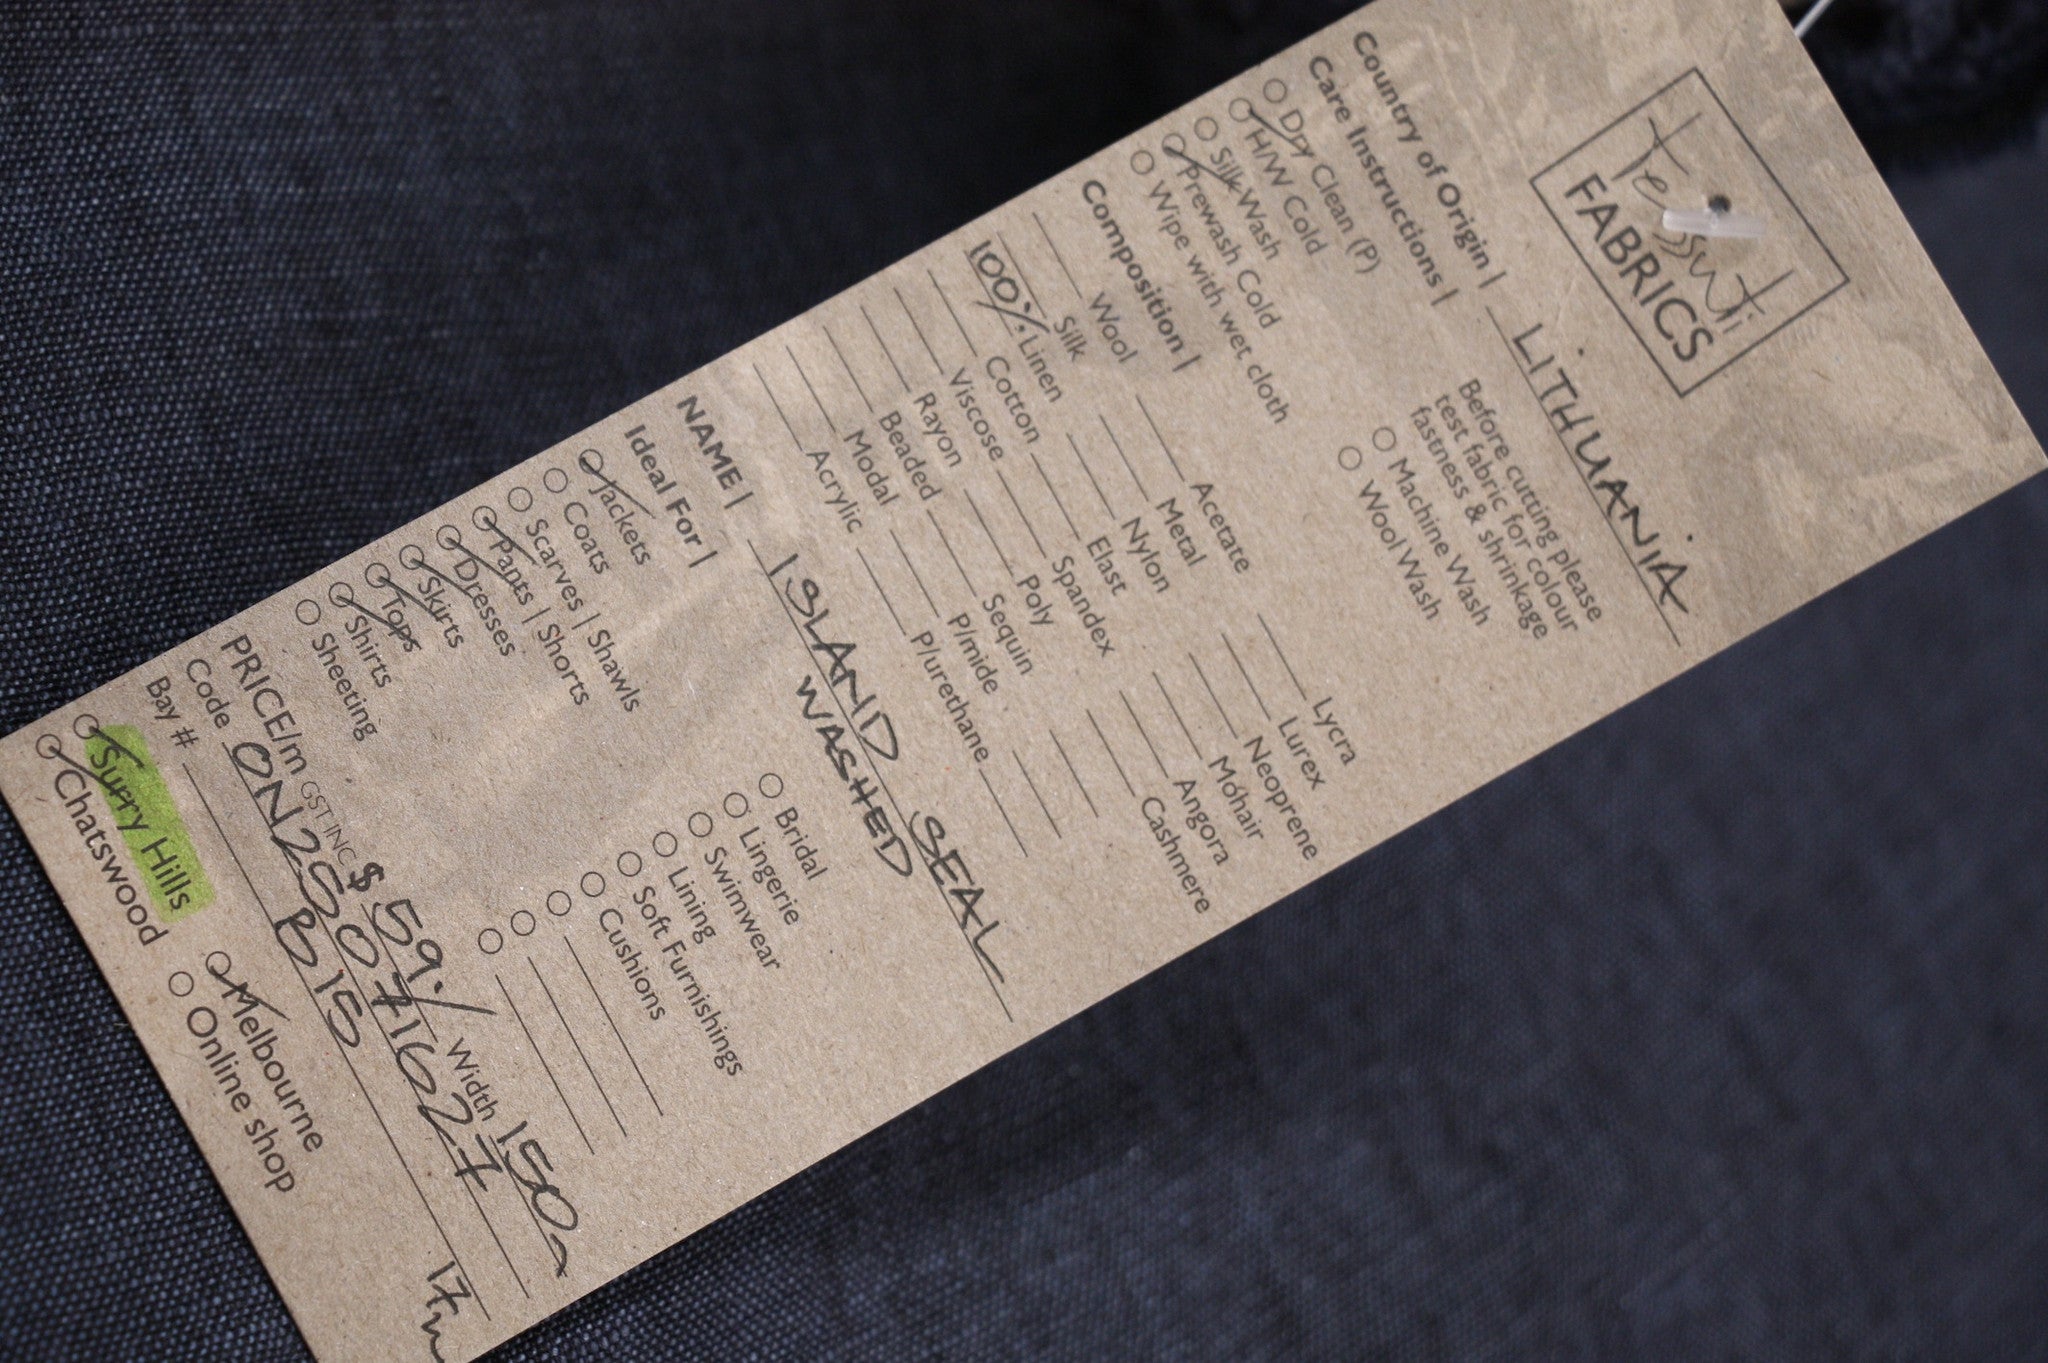 tessuti
FABRICS
Country of Origin | LITHUANIA
Care Instructions |
Dry Clean (P)
H/W Cold
Silk Wash
Prewash Cold
Wipe with wet cloth
Before cutting please
test fabric for colour
fastness & shrinkage
Machine Wash
Wool Wash
Composition |
Wool Acetate Lycra
Silk Metal Lurex
100% Linen Nylon Neoprene
Cotton Elast Mohair
Viscose Spandex Angora
Rayon Poly Cashmere
Beaded Sequin
Modal P/mide
Acrylic P/urethane
NAME | ISLAND SEAL
WASHED
Ideal For |
Jackets
Coats
Scarves | Shawls
Pants | Shorts
Dresses
Skirts
Tops
Shirts
Sheeting
Bridal
Lingerie
Swimwear
Lining
Soft Furnishings
Cushions
PRICE/m GST INC $59./ Width 150
Code ON25071627
Bay # B15 17m
Surry Hills Melbourne
Chatswood Online shop